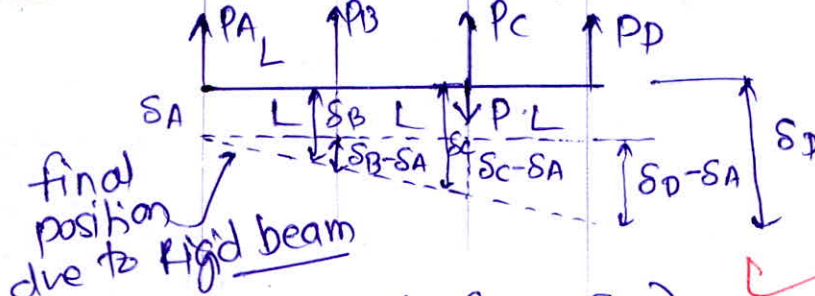 PA PB PC PD
L
δA L δB L P L
δB-δA δC δC-δA δD-δA δD
final
position
due to Rigid beam